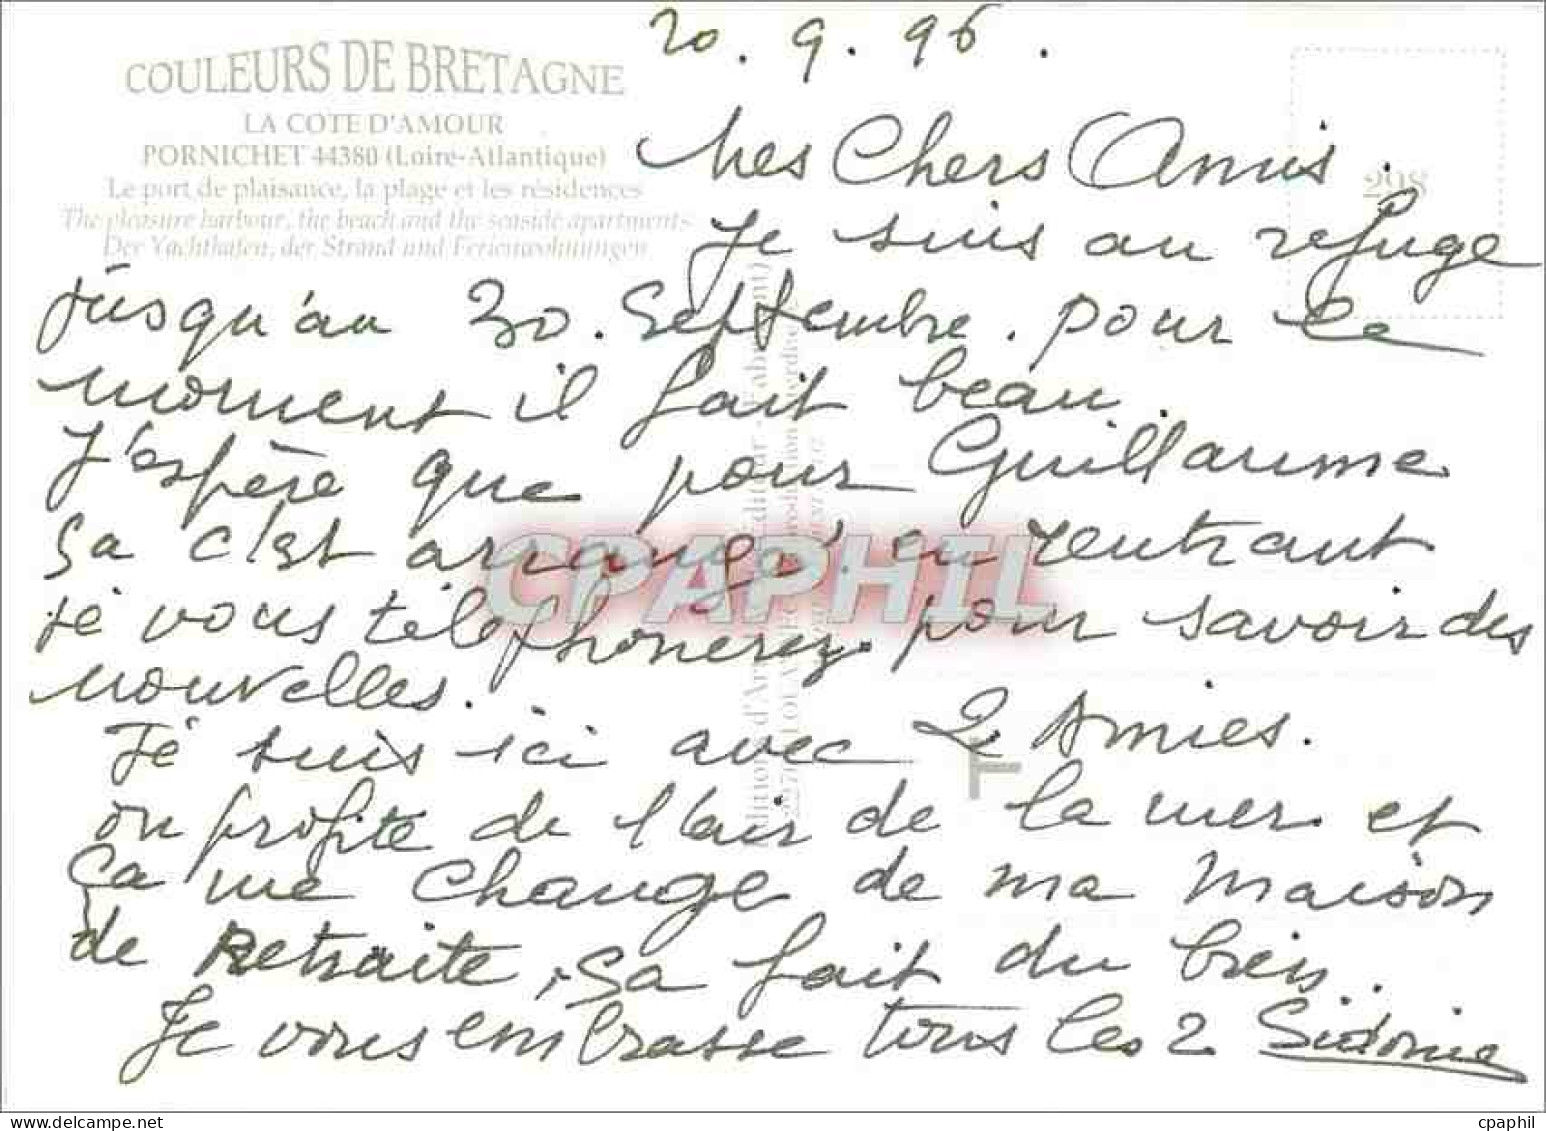 20.9.96.
COULEURS DE BRETAGNE
LA COTE D'AMOUR
PORNICHET 44380 (Loire-Atlantique)
Le port de plaisance, la plage et les résidences
The pleasure harbour, the beach and the seaside apartments
Der Yachthafen, der Strand und Ferienwohnungen
298
Mes Chers Amis.
Je suis au refuge
jusqu'au 30. Septembre. pour le
moment il fait beau.
J'espère que pour Guillaume
sa c'est arrangé. en rentrant
je vous téléphonerez. pour savoir des
nouvelles.
Je suis ici avec 2 Amies.
on profite de l'air de la mer. et
ça me change de ma maison
de Retraite, sa fait du bien.
Je vous embrasse tous les 2 Sidonie
CPAPHIL
cpaphil.com